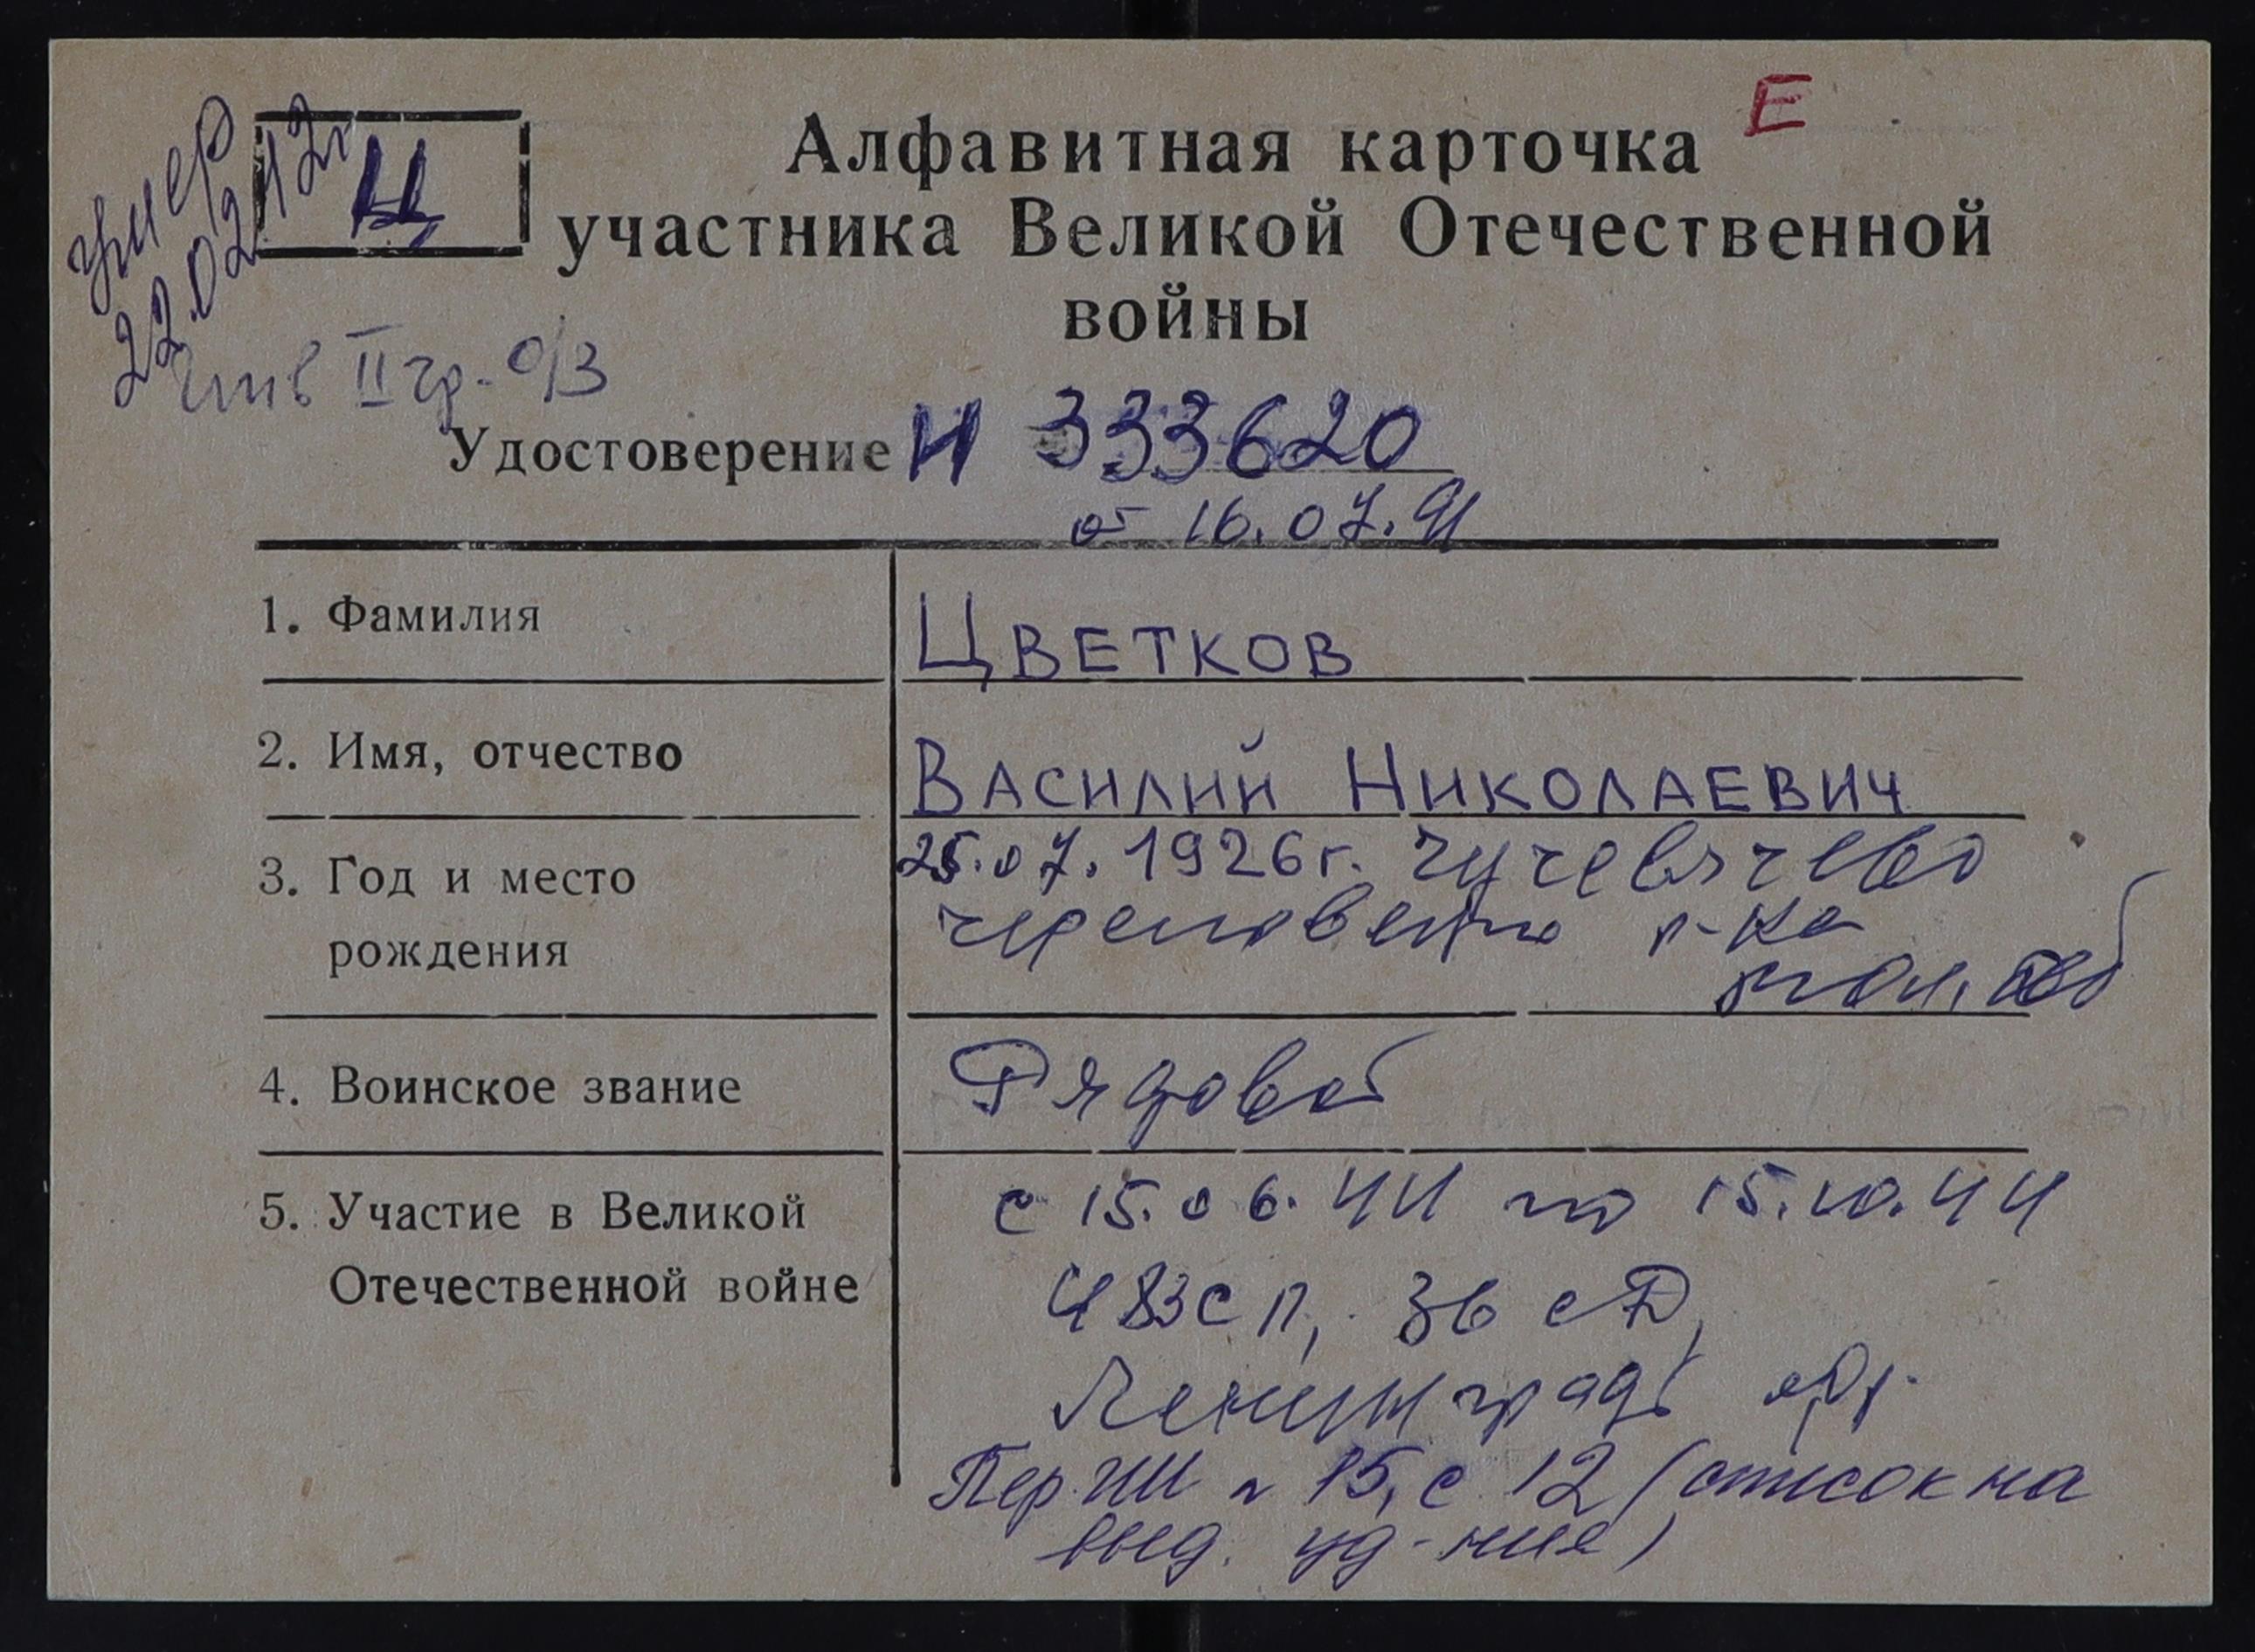 Е
Алфавитная карточка
участника Великой Отечественной
войны
Ц
умер
22.02.
инв II гр. о/з
Удостоверение И 333620
от 16.07.91
1. Фамилия
ЦВЕТКОВ
2. Имя, отчество
ВАСИЛИЙ НИКОЛАЕВИЧ
3. Год и место
рождения
25.07.1926г.
р-на
4. Воинское звание
Рядовой
5. Участие в Великой
Отечественной войне
с 15.06.44 по 15.10.44
483 сп, 36 сД,
Ленинград фр.
Пер. 15, с 12 (список на
выд. уд-ния)